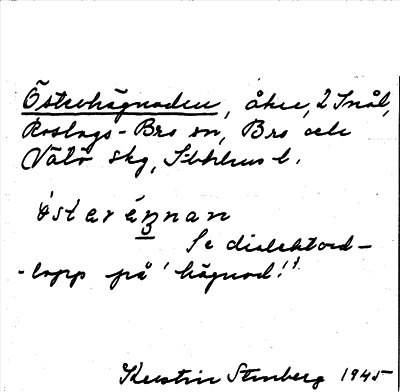 Östrehägnaden, åker, 2 Snål,
Roslags-Bro sn, Bro och
Vätö skg, Sthlms l.
östərännan
Se dialektord-
-lapp på 'hägnad'!
Kerstin Stenberg 1945